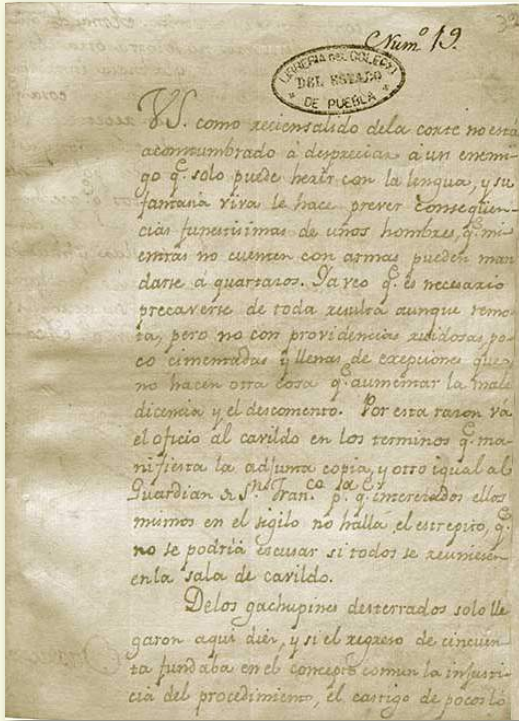 Num.º 19.
LIBRERIA DEL COLEGIO
DEL ESTADO
DE PUEBLA
VS. como reciensalido dela corte no está
acostumbrado à despreciar à un enemi-
go q.e solo puede herir con la lengua, y su
fantasia viva le hace prever consequen-
cias funestisimas de unos hombres, q.e mi-
entras no cuenten con armas pueden man
darse á quartazos. Ya veo q.e es necesario
precaverse de toda resulta aunque remo-
ta, pero no con providencias ruidosas, po-
co cimentadas y llenas de exepciones que
no hacen otra cosa q.e aumentar la male
dicencia y el descontento. Por esta razon vá
el oficio al cavildo en los terminos q.e ma-
nifiesta la adjunta copia, y otro igual al
Guardian de S.n Fran.co p.a q.e interesados ellos
mismos en el sigilo no halla el estrepito, q.e
no se podria escusar si todos se reuniesen
en la sala de cavildo.
Delos gachupines desterrados solo lle
garon aqui diez, y si el regreso de cincuen-
ta fundaba en el concepto comun la injusti-
cia del procedimiento, el castigo de pocos lo